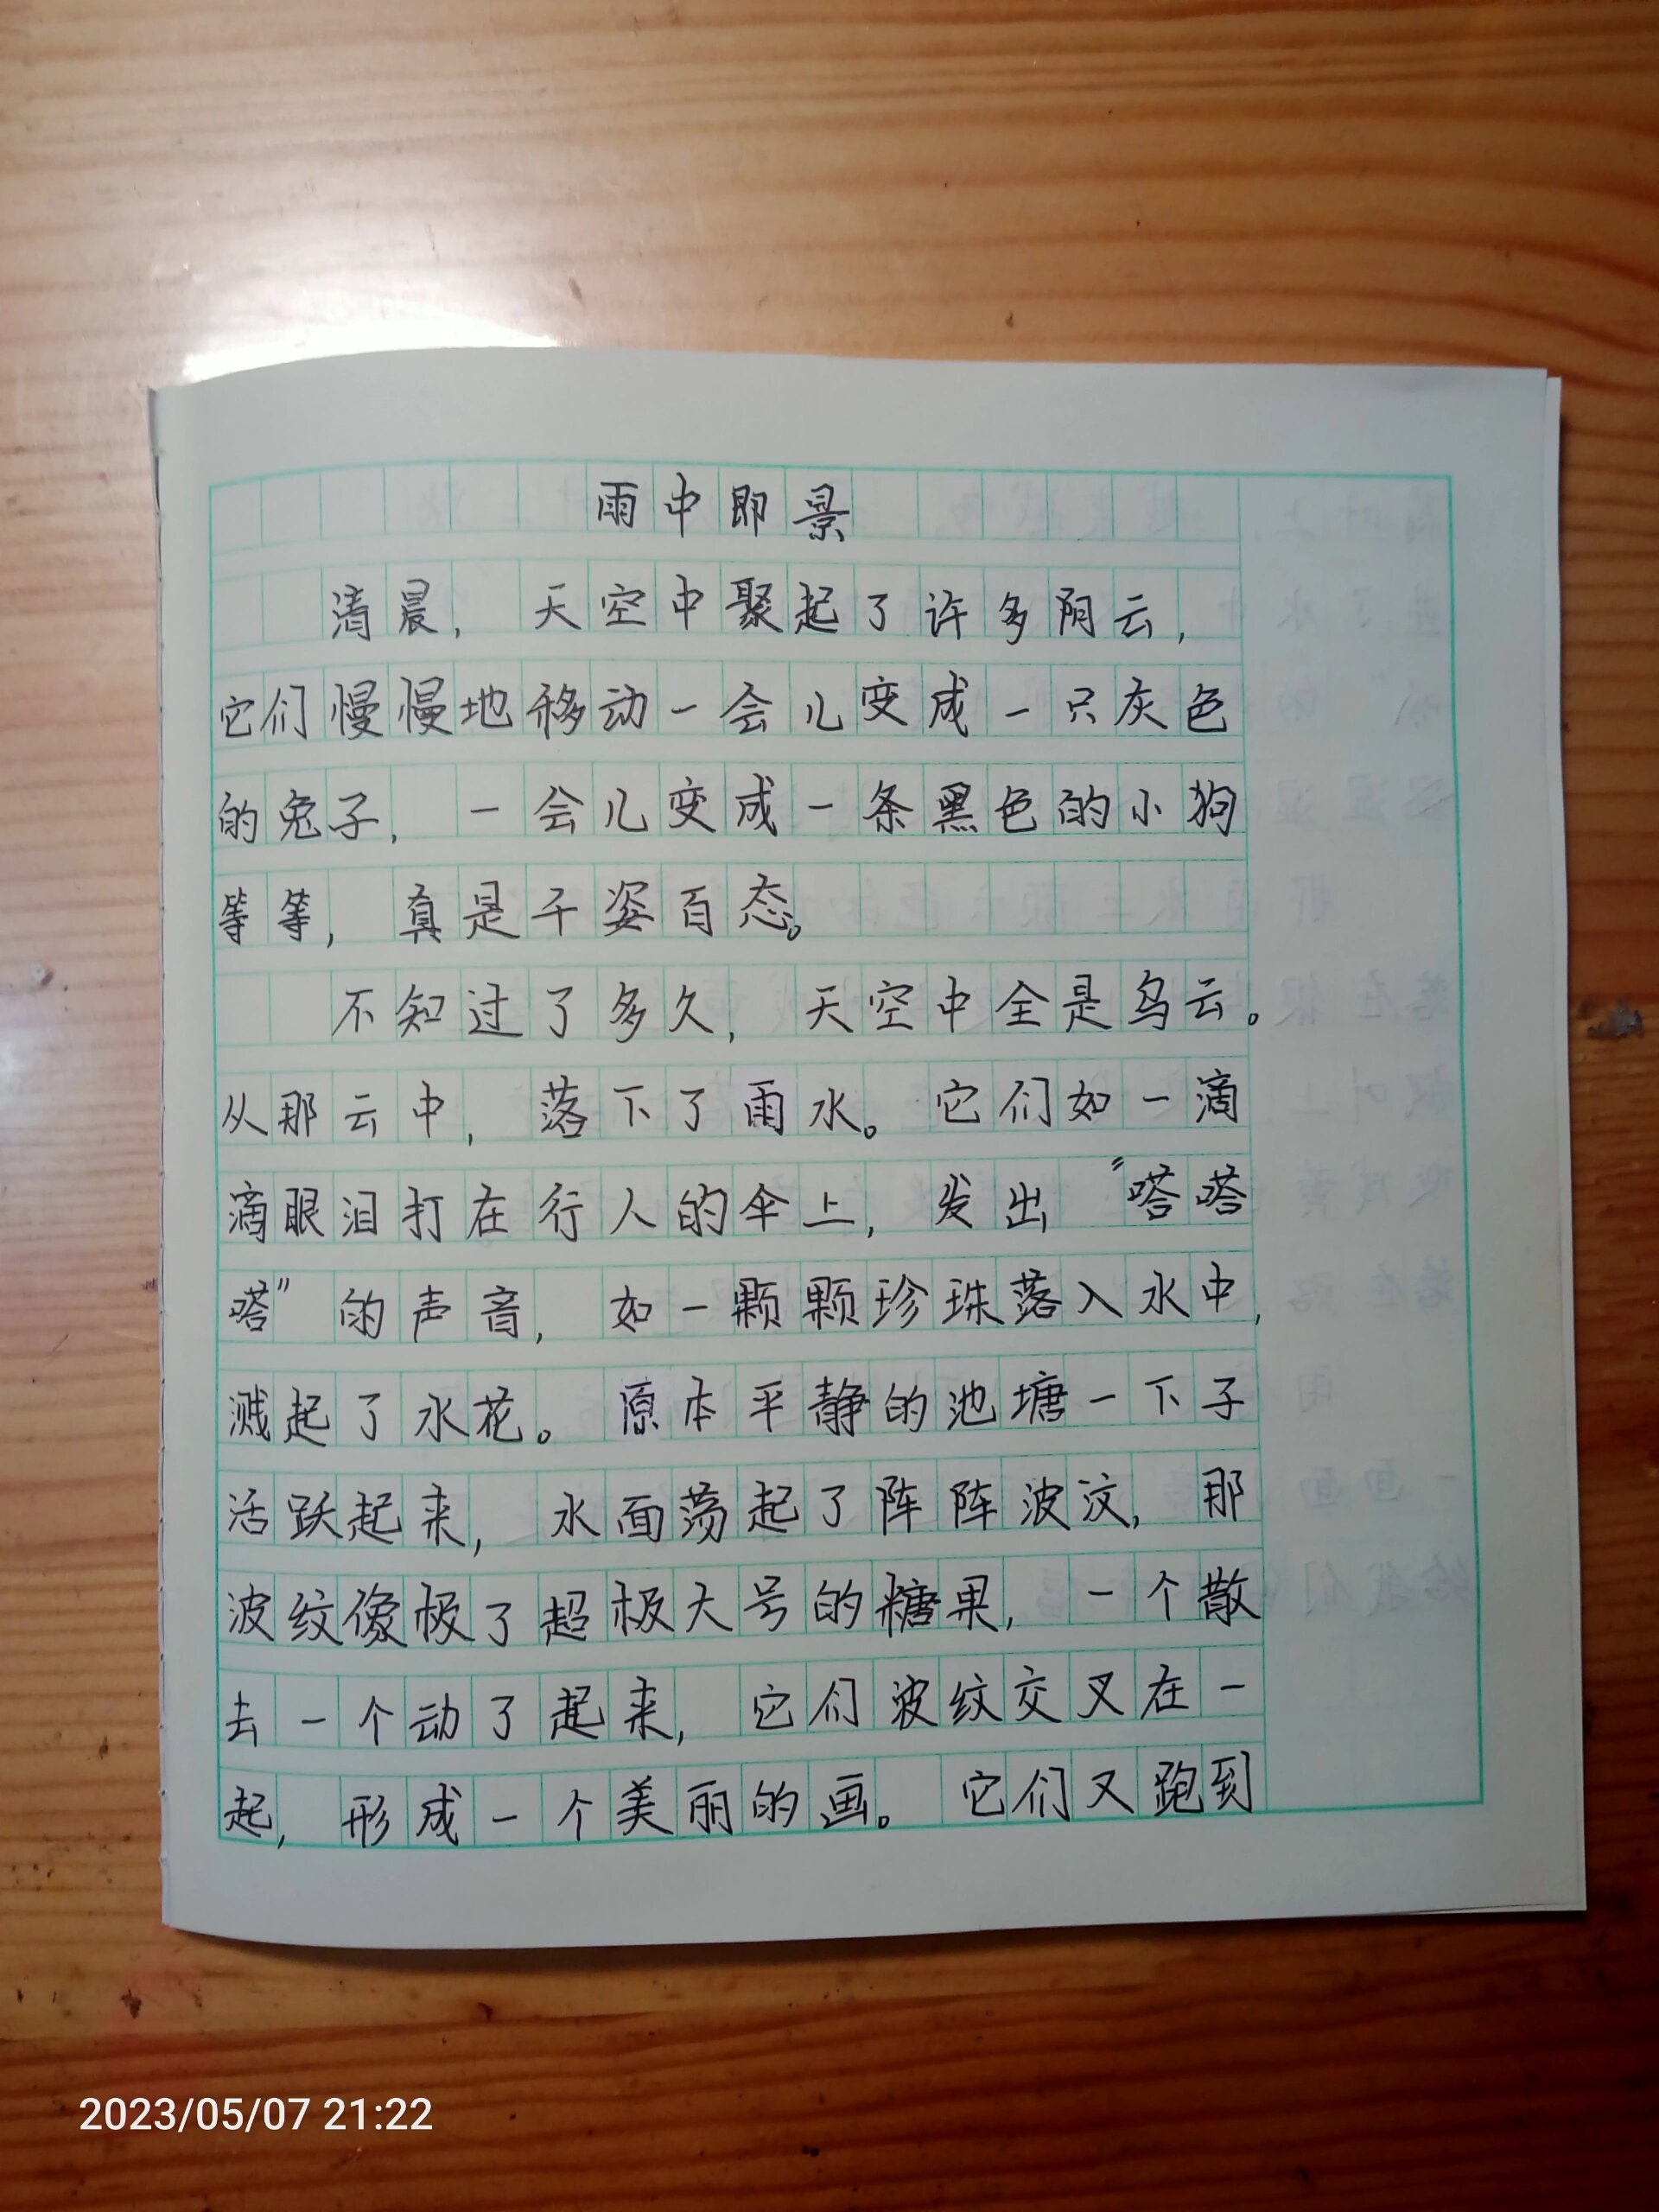 雨中即景
清晨，天空中聚起了许多阴云，
它们慢慢地移动一会儿变成一只灰色
的兔子，一会儿变成一条黑色的小狗
等等，真是千姿百态。
不知过了多久，天空中全是乌云。
从那云中，落下了雨水。它们如一滴
滴眼泪打在行人的伞上，发出“嗒嗒
嗒”的声音，如一颗颗珍珠落入水中，
溅起了水花。原本平静的池塘一下子
活跃起来，水面荡起了阵阵波汶，那
波纹像极了超极大号的糖果，一个散
去一个动了起来，它们波纹交叉在一
起，形成一个美丽的画。它们又跑到
2023/05/07 21:22